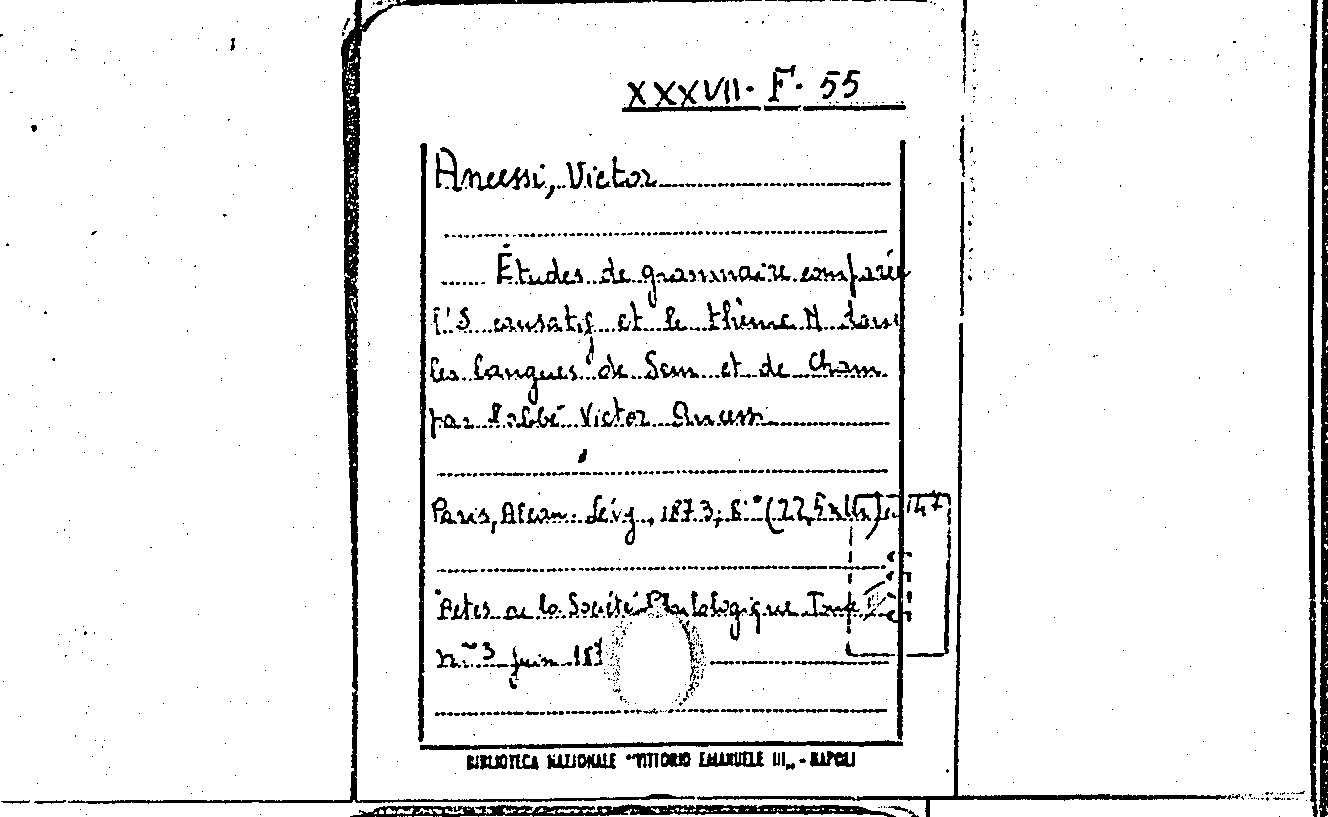 XXXVII. F. 55
Ancessi, Victor
Études de grammaire comparée
l'S causatif et le thème N dans
les langues de Sem et de Cham
par l'abbé Victor Ancessi
Paris, Alcan-Lévy, 1873; 8° (22,5x14) p. 147
Actes de la Société Philologique Tome
n.° 3 Juin 187
BIBLIOTECA NAZIONALE "VITTORIO EMANUELE III„ - NAPOLI